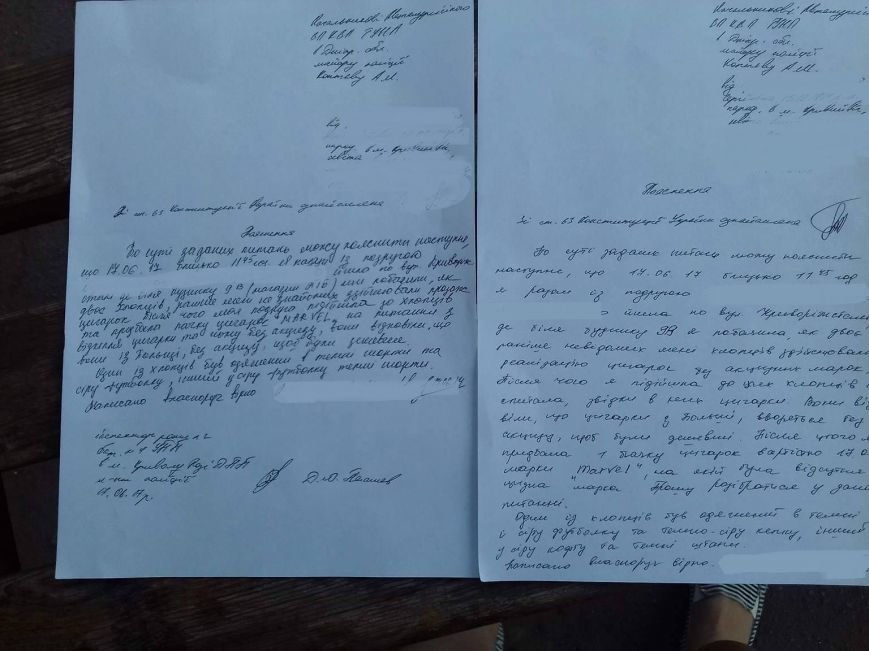 Начальникові Металургійного
ВП КВП ГУНП
в Дніпр. обл.
майору поліції
А.М.
від
народ. в м.
освіта
Зі ст. 63 Конституції України ознайомлена
Пояснення
По суті заданих питань можу пояснити наступне,
що 17.06.17 близько 11 45 із подругою
йшли по вул.
де біля будинку 9В ми побачили, як
двоє хлопців, раніше мені не знайомих здійснювали продаж
цигарок. Після чого моя подруга підійшла до хлопців
та придбала пачку цигарок "MARVEL", на питання з
відкіля цигарки та чому без акцизу, вони відповіли, що
вони із без акцизу, щоб були дешевше.
Один із хлопців був одягнений в темні шорти та
сіру футболку, інший у сіру футболку темні шорти.
Написано власноруч вірно
інспектор роти № 2
бат. № 1 УПП
в м. Кривому Розі ДПП
л-нт поліції
Д.Ю.
Начальникові Металургійного
ВП КВП ГУНП
в Дніпр. обл.
майору поліції
А.М.
від
народ. в м.
Пояснення
Зі ст. 63 Конституції України ознайомлена
По суті заданих питань можу пояснити
наступне, що 17.06.17 близько 11 45 год
я разом із подругою
йшла по вул.
де біля будинку 9В я побачила, як двоє
раніше невідомих мені хлопців здійснювали
реалізацію цигарок без акцизних марок.
Після чого я підійшла до цих хлопців і
спитала, звідки в них цигарки. Вони від
віли, що цигарки з без
акцизу, щоб були дешевші. Після цього я
придбала 1 пачку цигарок вартістю 17
марки "Marvel", на якій була відсутня
акцизна марка. Прошу розібратися у дано
питанні.
Один із хлопців був одягнений в темні
й сіру футболку та темно-сіру кепку, інший
у сіру кофту та темні штани.
Написано власноруч вірно.